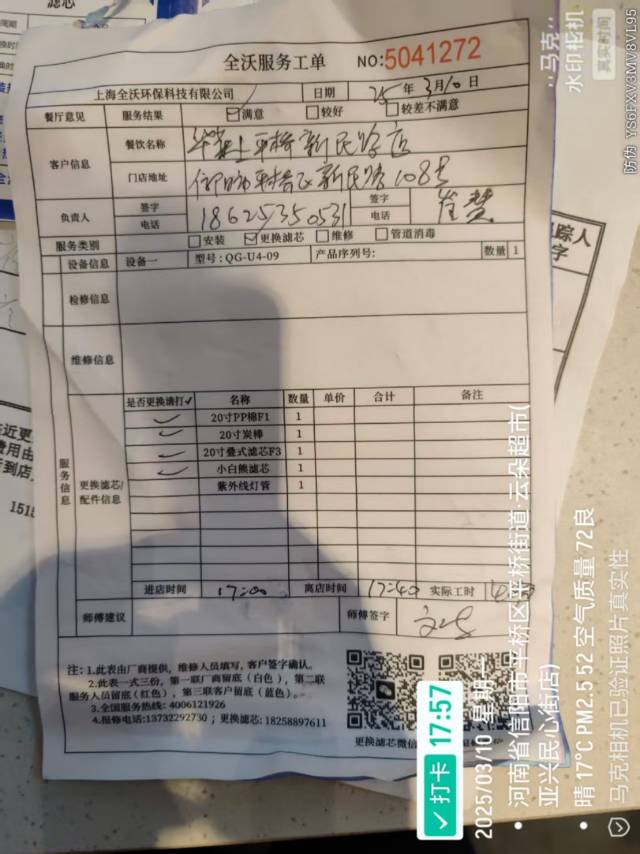 全沃服务工单 NO:5041272
上海全沃环保科技有限公司 日期 25年3月10日
餐厅意见 服务结果 满意 较好 较差不满意
客户信息 餐饮名称 平桥新民路店
门店地址 平桥区新民路108号
负责人 签字 电话 18625350531 签字 电话
服务类别 安装 更换滤芯 维修 管道消毒
设备信息 设备一 型号:QG-U4-09 产品序列号: 数量 1
检修信息
维修信息
服务信息
更换滤芯/配件信息
是否更换请打✓ 名称 数量 单价 合计 备注
✓ 20寸PP棉F1 1
✓ 20寸炭棒 1
✓ 20寸叠式滤芯F3 1
✓ 小白熊滤芯 1
紫外线灯管 1
进店时间 17:00 离店时间 17:40 实际工时
师傅建议 师傅签字
注: 1.此表由厂商提供, 维修人员填写, 客户签字确认。
2.此表一式三份, 第一联厂商留底 (白色) , 第二联
服务人员留底(红色) , 第三联客户留底 (蓝色) 。
3.全国服务热线: 4006121926
4.报修电话:13732292730 ; 更换滤芯: 18258897611
更换滤芯微信
滤芯
踪人
字
近更
费用由
行到店
1515
马克
水印相机
真实时间
防伪 YS6FXV3MV8VL95
打卡 17:57
2025/03/10 星期一
河南省信阳市平桥区平桥街道·云朵超市(
亚兴民心街店)
晴 17°C PM2.5 52 空气质量 72良
马克相机已验证照片真实性